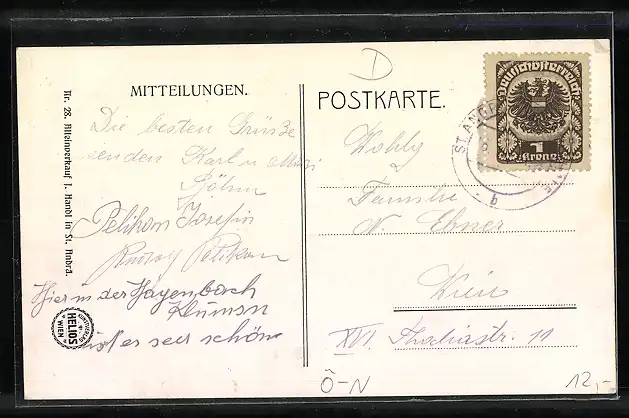 D
MITTEILUNGEN.
POSTKARTE.
Deutschösterreich
1
Krone
ST. ANDRÄ
b
Die besten Grüße
senden Karl u.
Böhm
Pelikan Josefin
Rudolf Pelikan
Hier in der Hagenbach
Klamm
ist es sehr schön
Wohlg
Familie
N. Ebner
Wien
XVI. Thaliastr. 11
Nr. 28. Alleinverkauf J. Handl in St. Andrä.
KUNSTVERLAG
HELIOS
WIEN
Ö-N
12,-